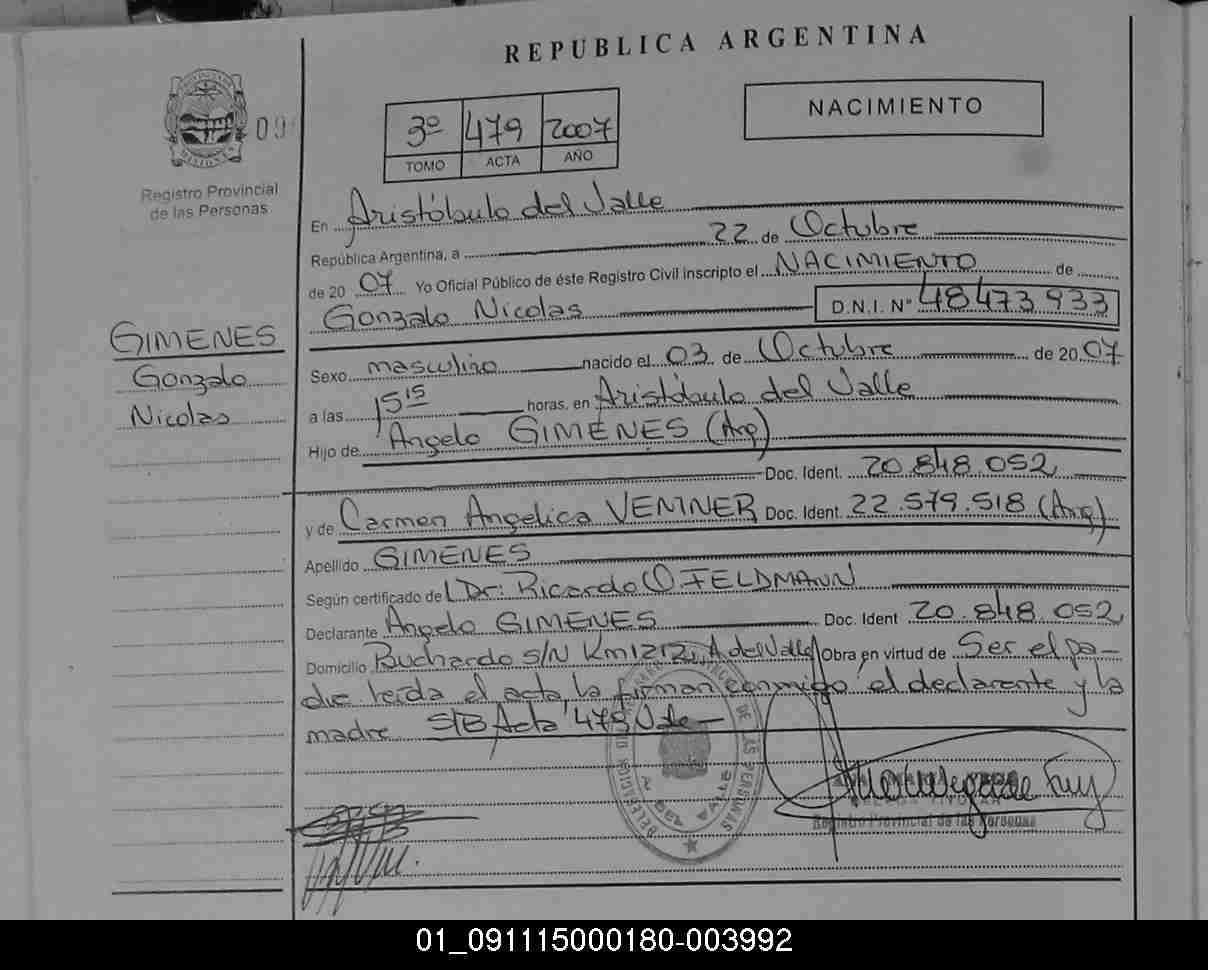 REPUBLICA ARGENTINA
NACIMIENTO
3º 479 2007
TOMO ACTA AÑO
09
Registro Provincial
de las Personas
En Aristóbulo del Valle
República Argentina, a 22 de Octubre
de 20 07 Yo Oficial Público de éste Registro Civil inscripto el NACIMIENTO de
Gonzalo Nicolas D.N.I. Nº 48473933
GIMENES
Gonzalo
Nicolas
Sexo masculino nacido el 03 de Octubre de 20 07
a las 15 15 horas, en Aristóbulo del Valle
Hijo de Angelo GIMENES (Arg)
Doc. Ident. 20.848.052
y de Carmen Angelica Doc. Ident. 22.579.518 (Arg)
Apellido GIMENES
Según certificado del Dr: Ricardo O. FELDMANN
Declarante Angelo GIMENES Doc. Ident 20.848.052
Domicilio Buchardo S/N Km 1212, A del Valle Obra en virtud de Ser el pa-
dre leída el acta, la firman conmigo el declarente y la
madre S/B Acta 479 Vale-
Registro Provincial de las Personas
DELEGACION
DE LAS PERSONAS
01_091115000180-003992